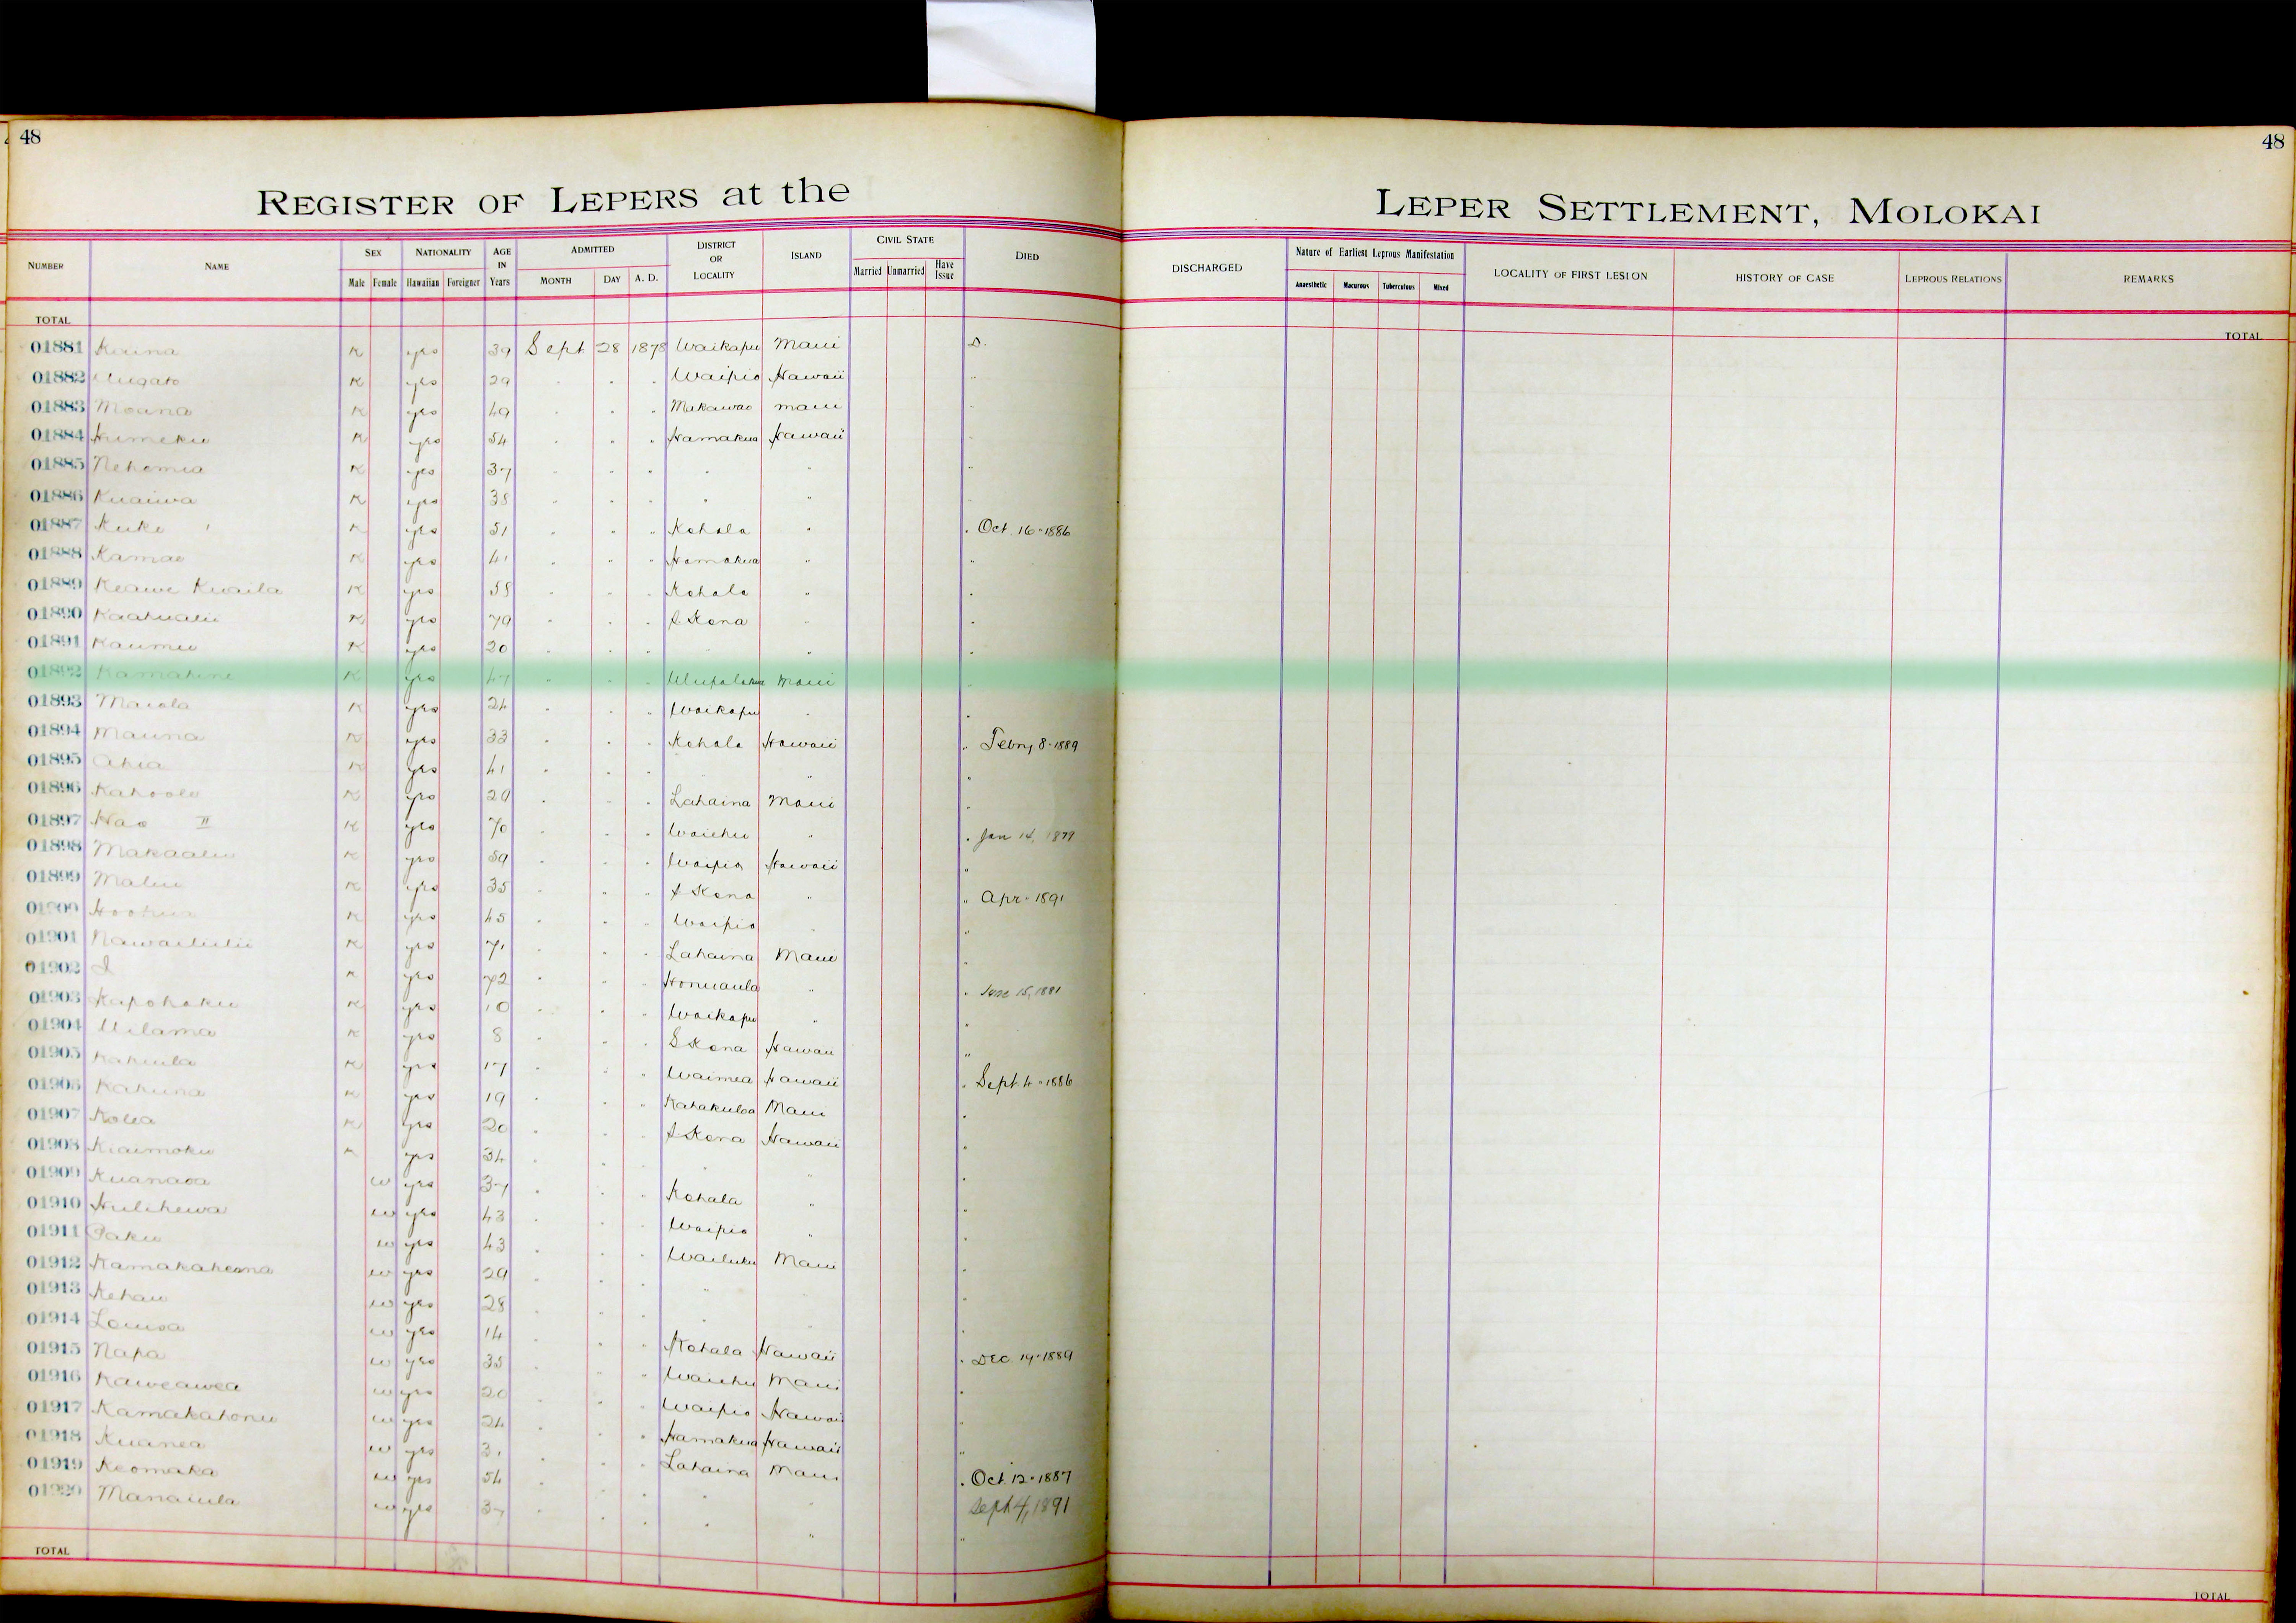 48
48
REGISTER OF LEPERS at the
LEPER SETTLEMENT, MOLOKAI
NUMBER NAME SEX Male Female NATIONALITY Hawaiian Foreigner AGE IN Years ADMITTED MONTH DAY A. D. DISTRICT OR LOCALITY ISLAND CIVIL STATE Married Unmarried Have Issue DIED
DISCHARGED Nature of Earliest Leprous Manifestation Anaesthetic Macurous Tuberculous Mixed LOCALITY OF FIRST LESION HISTORY OF CASE LEPROUS RELATIONS REMARKS
TOTAL
TOTAL
01881 K yes 39 Sept 28 1878 Waikapu Maui D.
01882 K yes 29 " " " Waipio Hawaii "
01883 Moana K yes 49 " " " Makawao maui "
01884 Humeku K yes 54 " " " Hamakua Hawaii "
01885 Nehemia K yes 37 " " " " " "
01886 Kuaiwa K yes 38 " " " " " "
01887 Kuke K yes 51 " " " Kohala " " Oct. 16 - 1886
01888 Kamao K yes 41 " " " Hamakua " "
01889 Keawe Kuaila K yes 58 " " " Kohala " "
01890 Kaahualii K yes 79 " " " S Kona " "
01891 Kaumu K yes 20 " " " " " "
01892 Kamahine K yes 47 " " " Ulupalakua Maui "
01893 Maiola K yes 24 " " " Waikapu " "
01894 Mauna K yes 33 " " " Kohala Hawaii " Febry 8 - 1889
01895 Ahia K yes 41 " " " " " "
01896 Kahoole K yes 29 " " " Lahaina Maui "
01897 Hao II K yes 70 " " " Waiehu " " Jan 14, 1879
01898 Makaalu K yes 59 " " " Waipio Hawaii "
01899 Malui K yes 35 " " " S Kona " " Apr - 1891
01900 K yes 45 " " " Waipio " "
01901 Nawailiilii K yes 71 " " " Lahaina Maui "
01902 I K yes 72 " " " Honuaula " " June 15, 1881
01903 Kapohaku K yes 10 " " " Waikapu " "
01904 Uilama K yes 8 " " " S Kona Hawaii "
01905 Kahiula K yes 17 " " " Waimea Hawaii " Sept. 4 - 1886
01906 Kahuna K yes 19 " " " Kahakuloa Maui "
01907 Kolea K yes 20 " " " S Kona Hawaii "
01908 Kiaimoku K yes 34 " " " " " "
01909 Kuanaoa w yes 37 " " " Kohala " "
01910 Hulihewa w yes 43 " " " Waipio " "
01911 Paku w yes 43 " " " Wailuku Maui "
01912 Kamakaheana w yes 29 " " " " " "
01913 Kehau w yes 28 " " " " " "
01914 Louisa w yes 14 " " " Kohala Hawaii " Dec. 19 - 1889
01915 Napa w yes 35 " " " Waiehu Maui "
01916 Kaweawea w yes 20 " " " Waipio Hawaii "
01917 Kamakahonu w yes 24 " " " Hamakua Hawaii "
01918 Kuanea w yes 31 " " " Lahaina Maui " Oct 12 - 1887
01919 Keomaka w yes 54 " " " " " Sept 4, 1891
01920 Manaiula w yes 37 " " " " " "
TOTAL
TOTAL